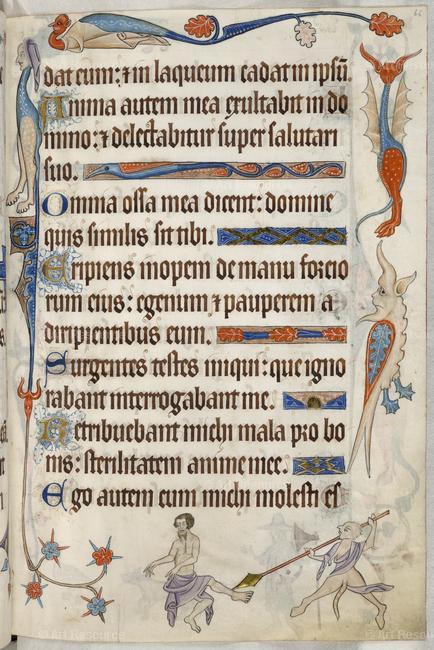 dat eum: ⁊ in laqueum cadat in ipsū.
Anima autem mea exultabit in do
mino: ⁊ delectabitur super salutari
suo.
Omnia ossa mea dicent: domine
quis similis sit tibi.
Eripiens inopem de manu forcio
rum eius: egenum ⁊ pauperem a
diripientibus eum.
Surgentes testes iniqui: que igno
rabant interrogabant me.
Retribuebant michi mala pro bo
nis: sterilitatem anime mee.
Ego autem cum michi molesti es
© Art Resource